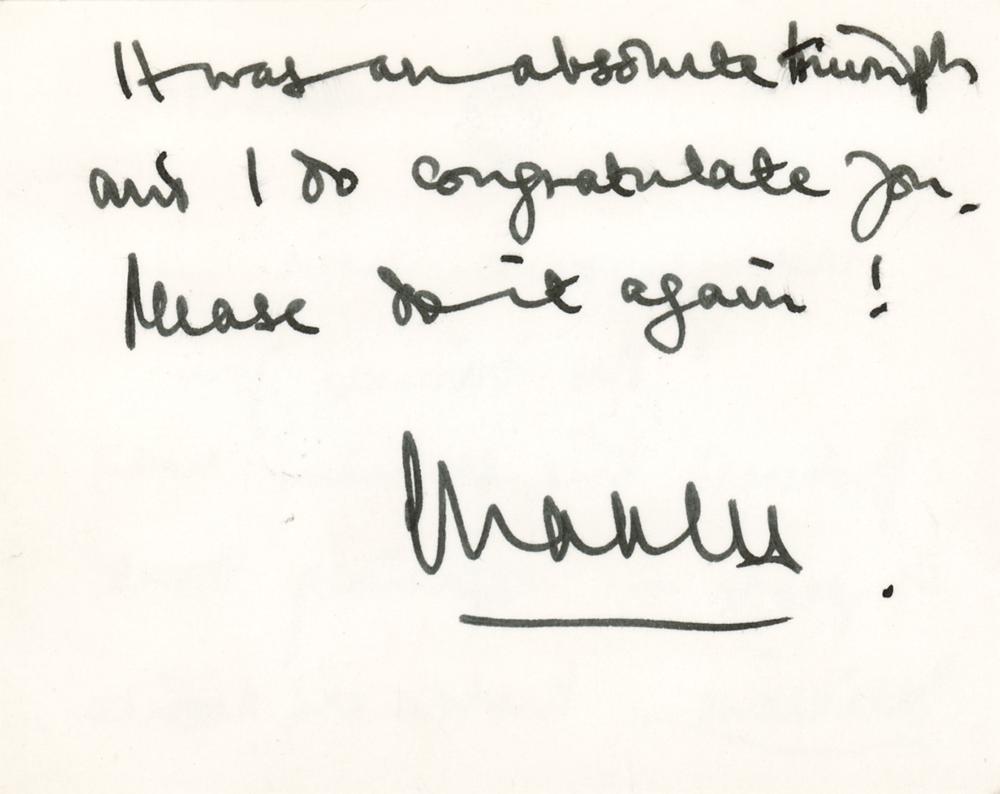 It was an absolute triumph
and I do congratulate you.
Please do it again!
Charles